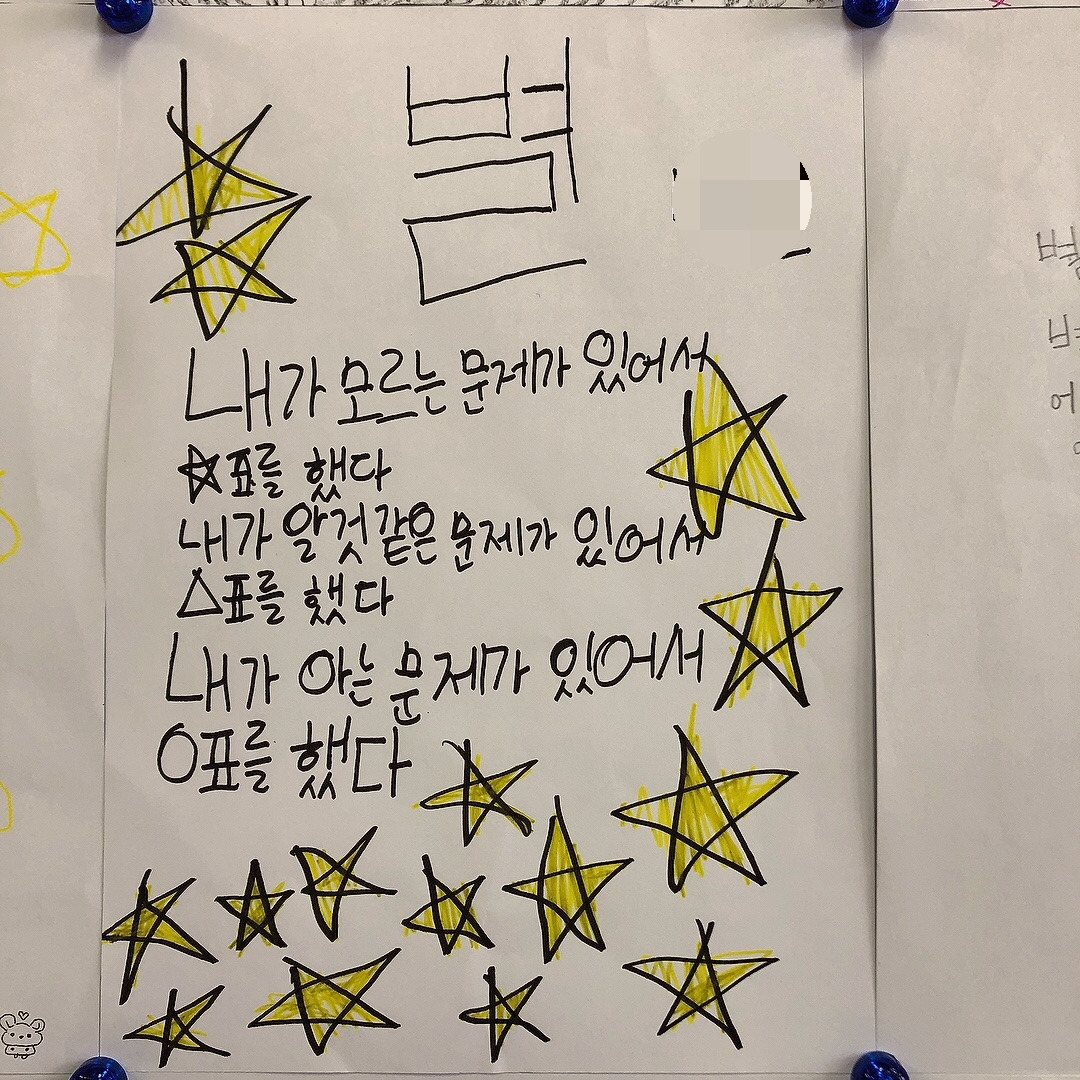 별
내가 모르는 문제가 있어서
☆표를 했다
내가 알것같은 문제가 있어서
△표를 했다
내가 아는 문제가 있어서
O표를 했다